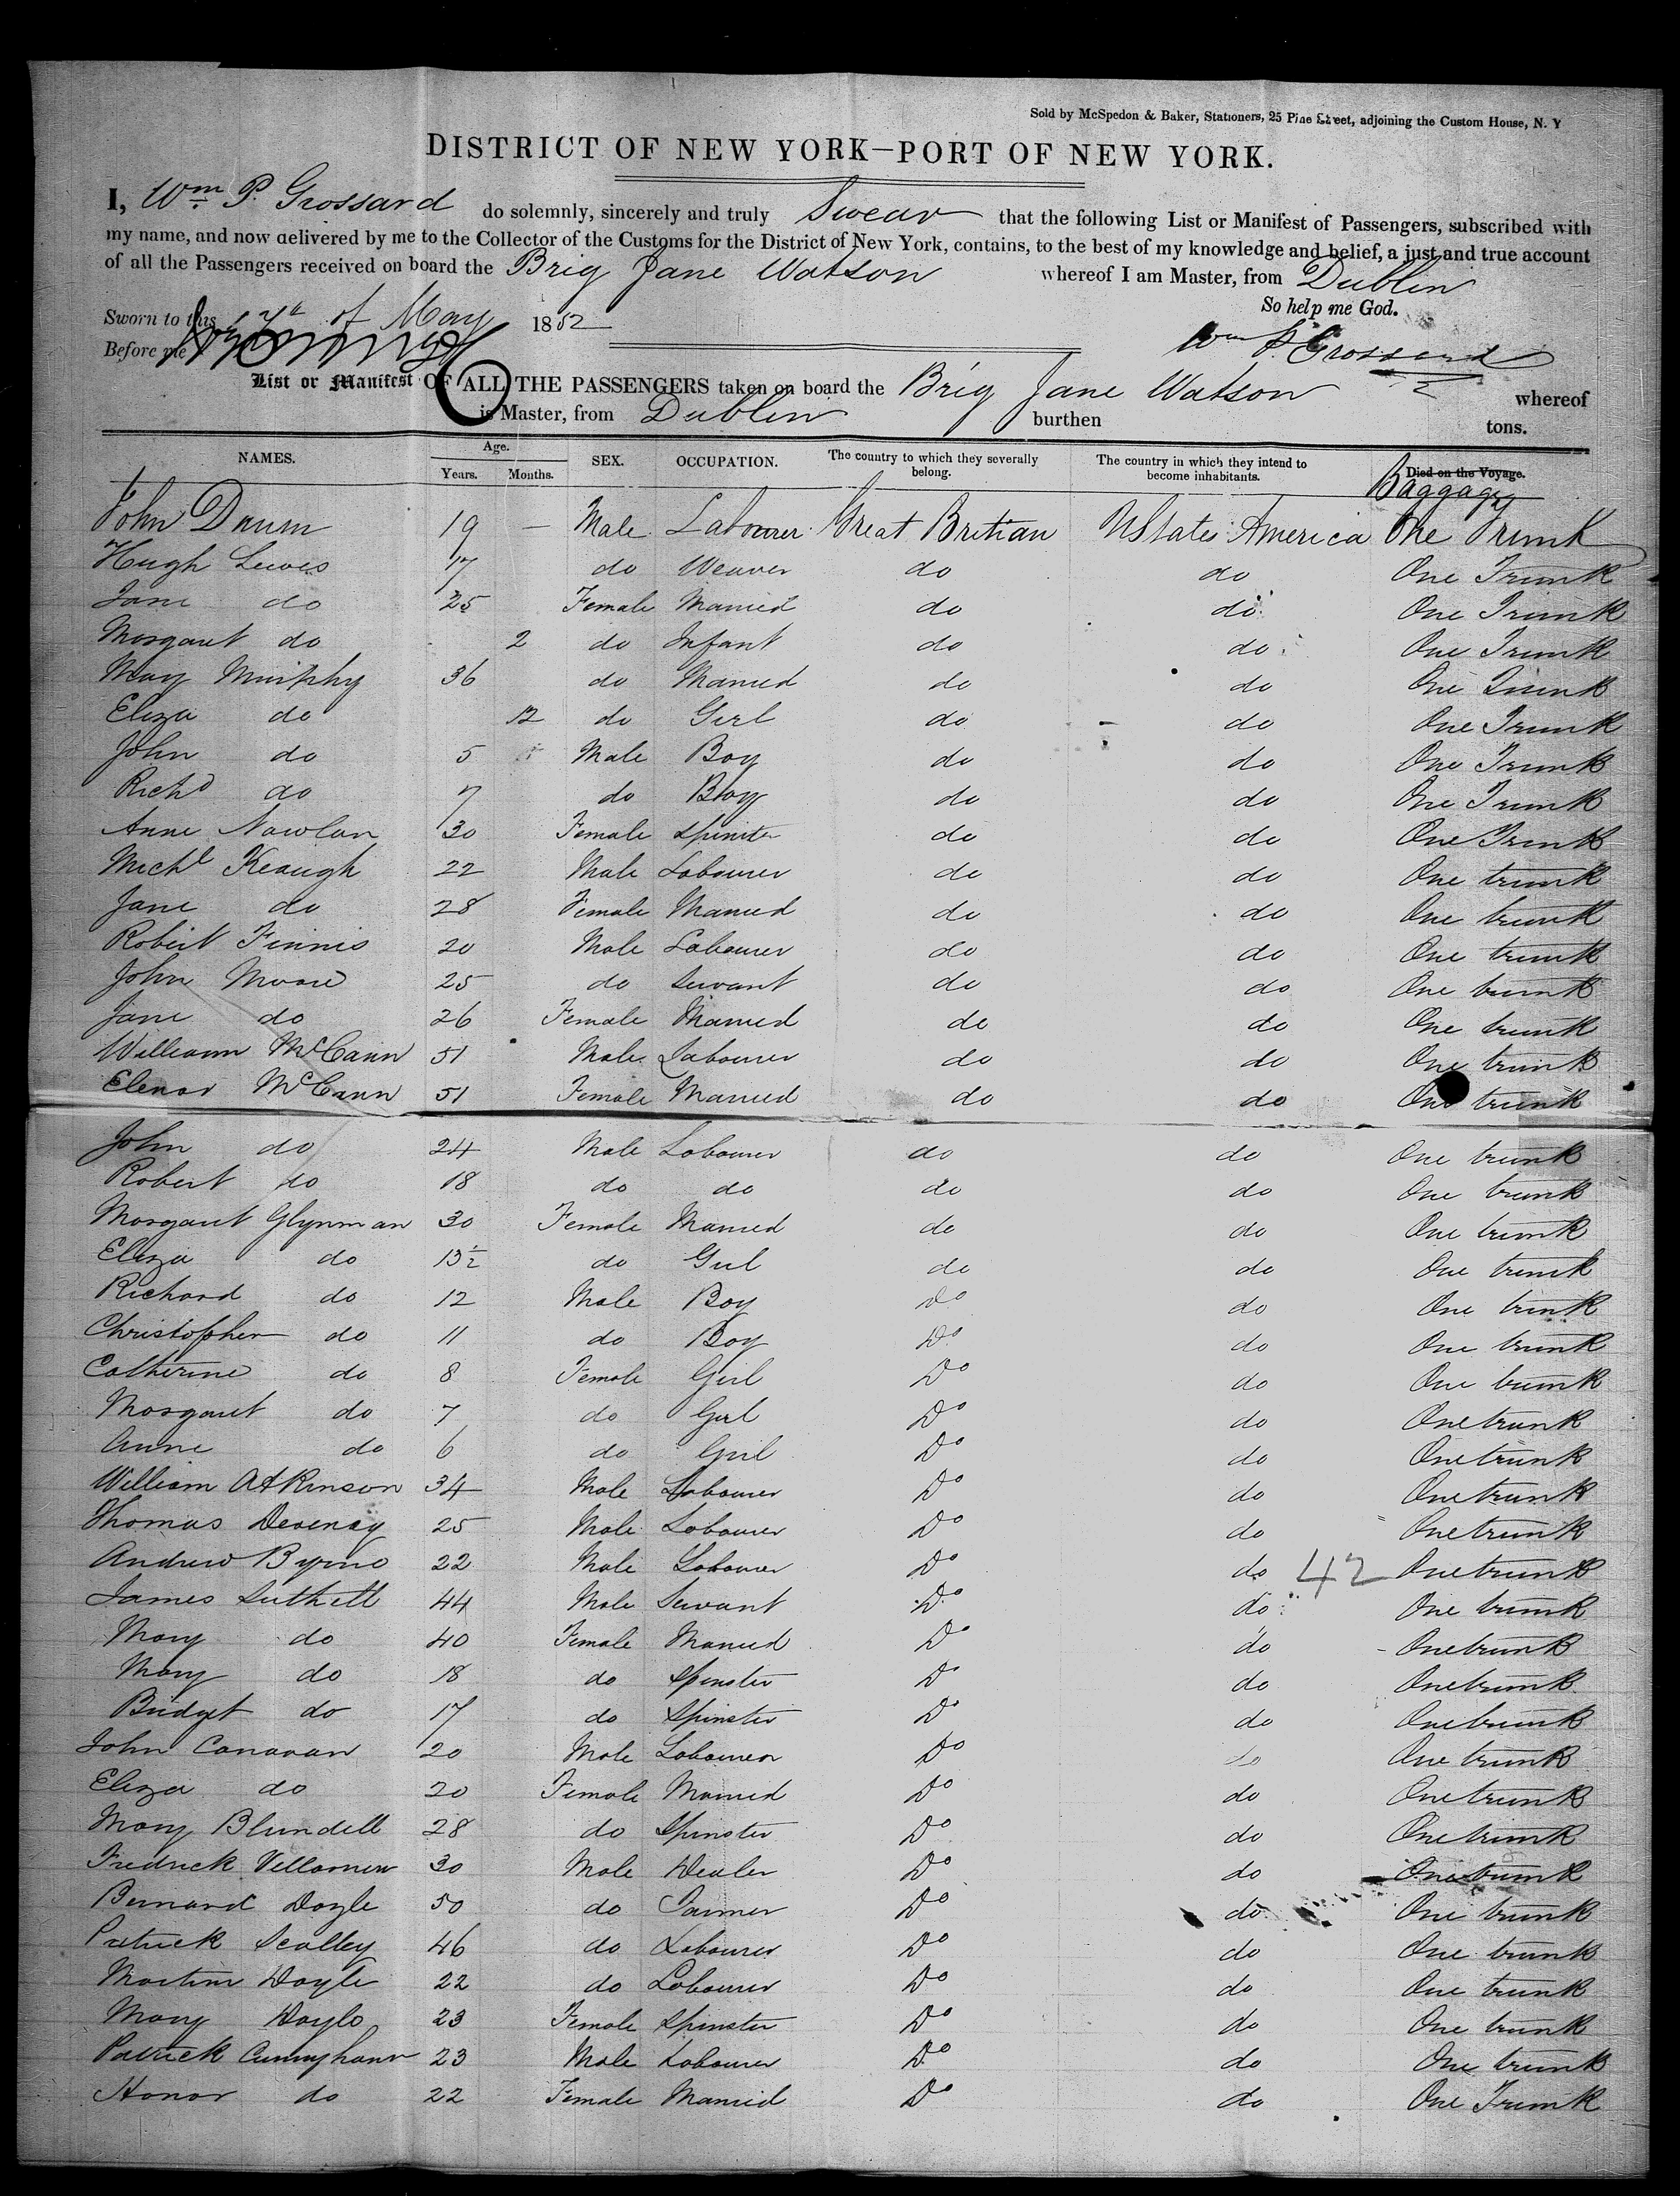 Sold by McSpedon & Baker, Stationers, 25 Pine Street, adjoining the Custom House, N. Y
DISTRICT OF NEW YORK—PORT OF NEW YORK.
I, Wm. P. Grossard do solemnly, sincerely and truly Swear that the following List or Manifest of Passengers, subscribed with
my name, and now delivered by me to the Collector of the Customs for the District of New York, contains, to the best of my knowledge and belief, a just and true account
of all the Passengers received on board the Brig Jane Watson whereof I am Master, from Dublin
So help me God.
Sworn to this of May 1852
Before me
Wm P. Grossard
List or Manifest OF ALL THE PASSENGERS taken on board the Brig Jane Watson whereof
is Master, from Dublin burthen tons.
NAMES. Age. Years. Months. SEX. OCCUPATION. The country to which they severally belong. The country in which they intend to become inhabitants. Died on the Voyage. Baggage
John 19 — Male Labourer Great Britian UStates America One Trunk
Hugh Lewes 17 do Weaver do do One Trunk
Jane do 25 Female Married do do One Trunk
Margaret do 2 do Infant do do One Trunk
Mary Murphy 36 do Married do do One Trunk
Eliza do 12 do Girl do do One Trunk
John do 5 Male Boy do do One Trunk
Richd do 7 do Boy do do One Trunk
Anne Nowlan 30 Female Spinster do do One Trunk
Michl Keaugh 22 Male Labourer do do One trunk
Jane do 28 Female Married do do One trunk
Robert Finnis 20 Male Labourer do do One trunk
John Moore 25 do Servant do do One trunk
Jane do 26 Female Married do do One trunk
William McCann 51 Male Labourer do do One trunk
Elenor McCann 51 Female Married do do One trunk
John do 24 Male Labourer do do One trunk
Robert do 18 do do do do One trunk
Margaret Glynman 30 Female Married do do One trunk
Eliza do 13½ do Girl do do One trunk
Richard do 12 Male Boy Do do One trunk
Christopher do 11 do Boy Do do One trunk
Catherine do 8 Female Girl Do do One trunk
Margaret do 7 do Girl Do do One trunk
Anne do 6 do Girl Do do One trunk
William Atkinson 34 Male Labourer Do do One trunk
Thomas Devenay 25 Male Labourer Do do One trunk
Andrew Byrne 22 Male Labourer Do do 42 One trunk
James Suthell 44 Male Servant Do do One trunk
Mary do 40 Female Married Do do One trunk
Mary do 18 do Spinster Do do One trunk
Bridget do 17 do Spinster Do do One trunk
John Canavan 20 Male Labourer Do do One trunk
Eliza do 20 Female Married Do do One trunk
Mary Blundell 28 do Spinster Do do One trunk
Fredrick 30 Male Dealer Do do One trunk
Bernard Doyle 50 do Farmer Do do One trunk
Patrick Scalley 46 do Labourer Do do One trunk
Martin Doyle 22 do Labourer Do do One trunk
Mary Doyle 23 Female Spinster Do do One trunk
Patrick Cunnyhann 23 Male Labourer Do do One trunk
Honor do 22 Female Married Do do One Trunk